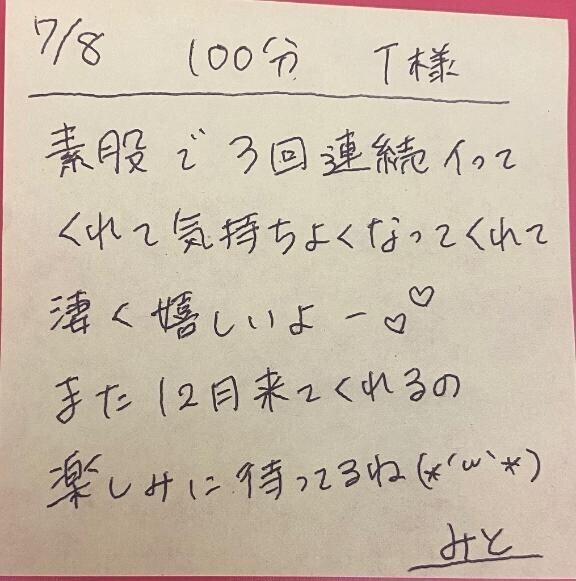 7/8 100分 T様
素股で3回連続イって
くれて気持ちよくなってくれて
凄く嬉しいよー♡♡
また12月来てくれるの
楽しみに待ってるね(*´ω`*)
みと